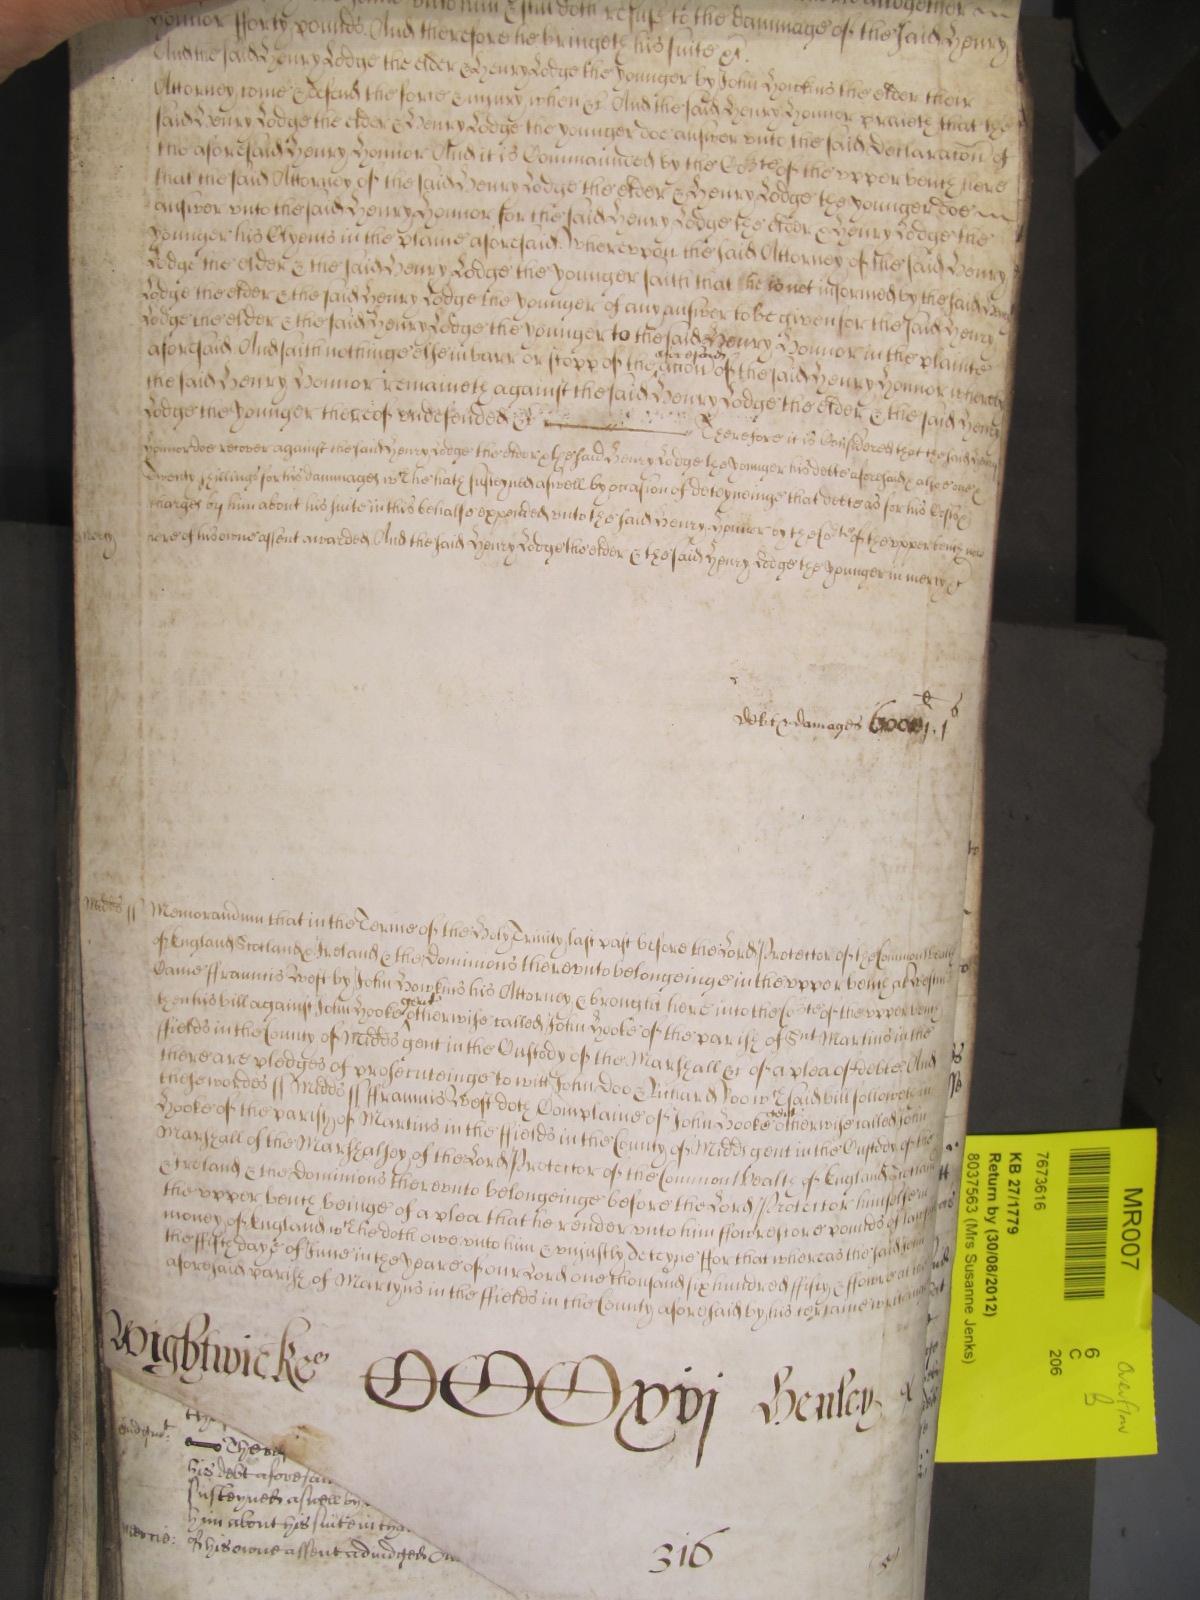 Honnor fforty pounds. And therefore he bringeth his suite &c.
And the said Henry Lodge the elder & Henry Lodge the younger by John Howkins the elder their
Attorney come & defend the force & iniury when &c And the said Henry Honnor praieth that the
said Henry Lodge the elder & Henry Lodge the younger doe answer unto the said Declaracon of
the aforesaid Henry Honnor And it is Commaunded by the Co:rte of the upper bench here
that the said Attorney of the said Henry Lodge the elder & Henry Lodge the younger doe
answer unto the said Henry Honnor for the said Henry Lodge the elder & Henry Lodge the
younger his Clyents in the plainte aforesaid. Whereupon the said Attorney of the said Henry
Lodge the elder & the said Henry Lodge the younger saith that he is not informed by the said Henry
Lodge the elder & the said Henry Lodge the younger of any answer to be given for the said Henry
Lodge the elder & the said Henry Lodge the younger to the said Henry Honnor in the plainte
aforesaid And saith nothinge else in barr or stopp of the aforesaid accion of the said Henry Honnor whereby
the said Henry Honnor remaineth against the said Henry Lodge the elder & the said Henry
Lodge the younger thereof undefended &c Therefore it is Considered that the said Henry
Honnor doe recover against the said Henry Lodge the elder & the said Henry Lodge the younger his debte aforesaid & alsoe one &
Twenty shillings for his dammages wch he hath susteyned aswell by occasion of deteyneinge that debte as for his Costes &
charges by him about his suite in this behalfe expended unto the said Henry Honnor by the Co:rte of the upper bench now
here of his owne assent awarded And the said Henry Lodge the elder & the said Henry Lodge the younger in mercy &c
mercy
debt & damages
Midds ss Memorandum that in the Terme of the Holy Trinity last past before the Lord Protector of the Common wealth
of England Scotland & Ireland & the Dominions thereunto belongeinge in the upper bench at Westmr
Came ffrancis West by John Howkins his Attorney & brought here into the Co:rte of the upper bench
then his bill against John Hooke gent otherwise called John Hooke of the parish of Snt Martins in the
ffields in the County of Midds gent in the Custody of the Marshall &c of a plea of debte And
there are pledges of prosecuteinge to witt John Doo & Richard Roo wch said bill followeth in
these wordes ss Midds ss ffrancis West doth Complaine of John Hooke gent otherwise called John
Hooke of the parish of Martins in the ffields in the County of Midds gent in the Custody of the
Marshall of the Marshalsey of the Lord Protector of the Common wealth of England Scotland
& Ireland & the Dominions thereunto belongeinge before the Lord Protector himselfe in
the upper bench beinge of a plea that he render unto him ffowrescore pounds of lawfull
money of England wch he doth owe unto him & uniustly deteyne ffor that whereas the said John
the fifth daye of June in the yeare of our Lord one thousand six hundred fifty & ffowre at the
aforesaid parish of Martyns in the ffields in the County aforesaid by his certaine writeinge
Wightwicke CCCxvj Henley
Judgmt:
There
his debt aforesaid
susteyned aswell by
him about his suite in
mercie: of his owne assent adiudged
316
MR007
6
C
206
Overflow
B
7673616
KB 27/1779
Return by (30/08/2012)
8037563 (Mrs Susanne Jenks)